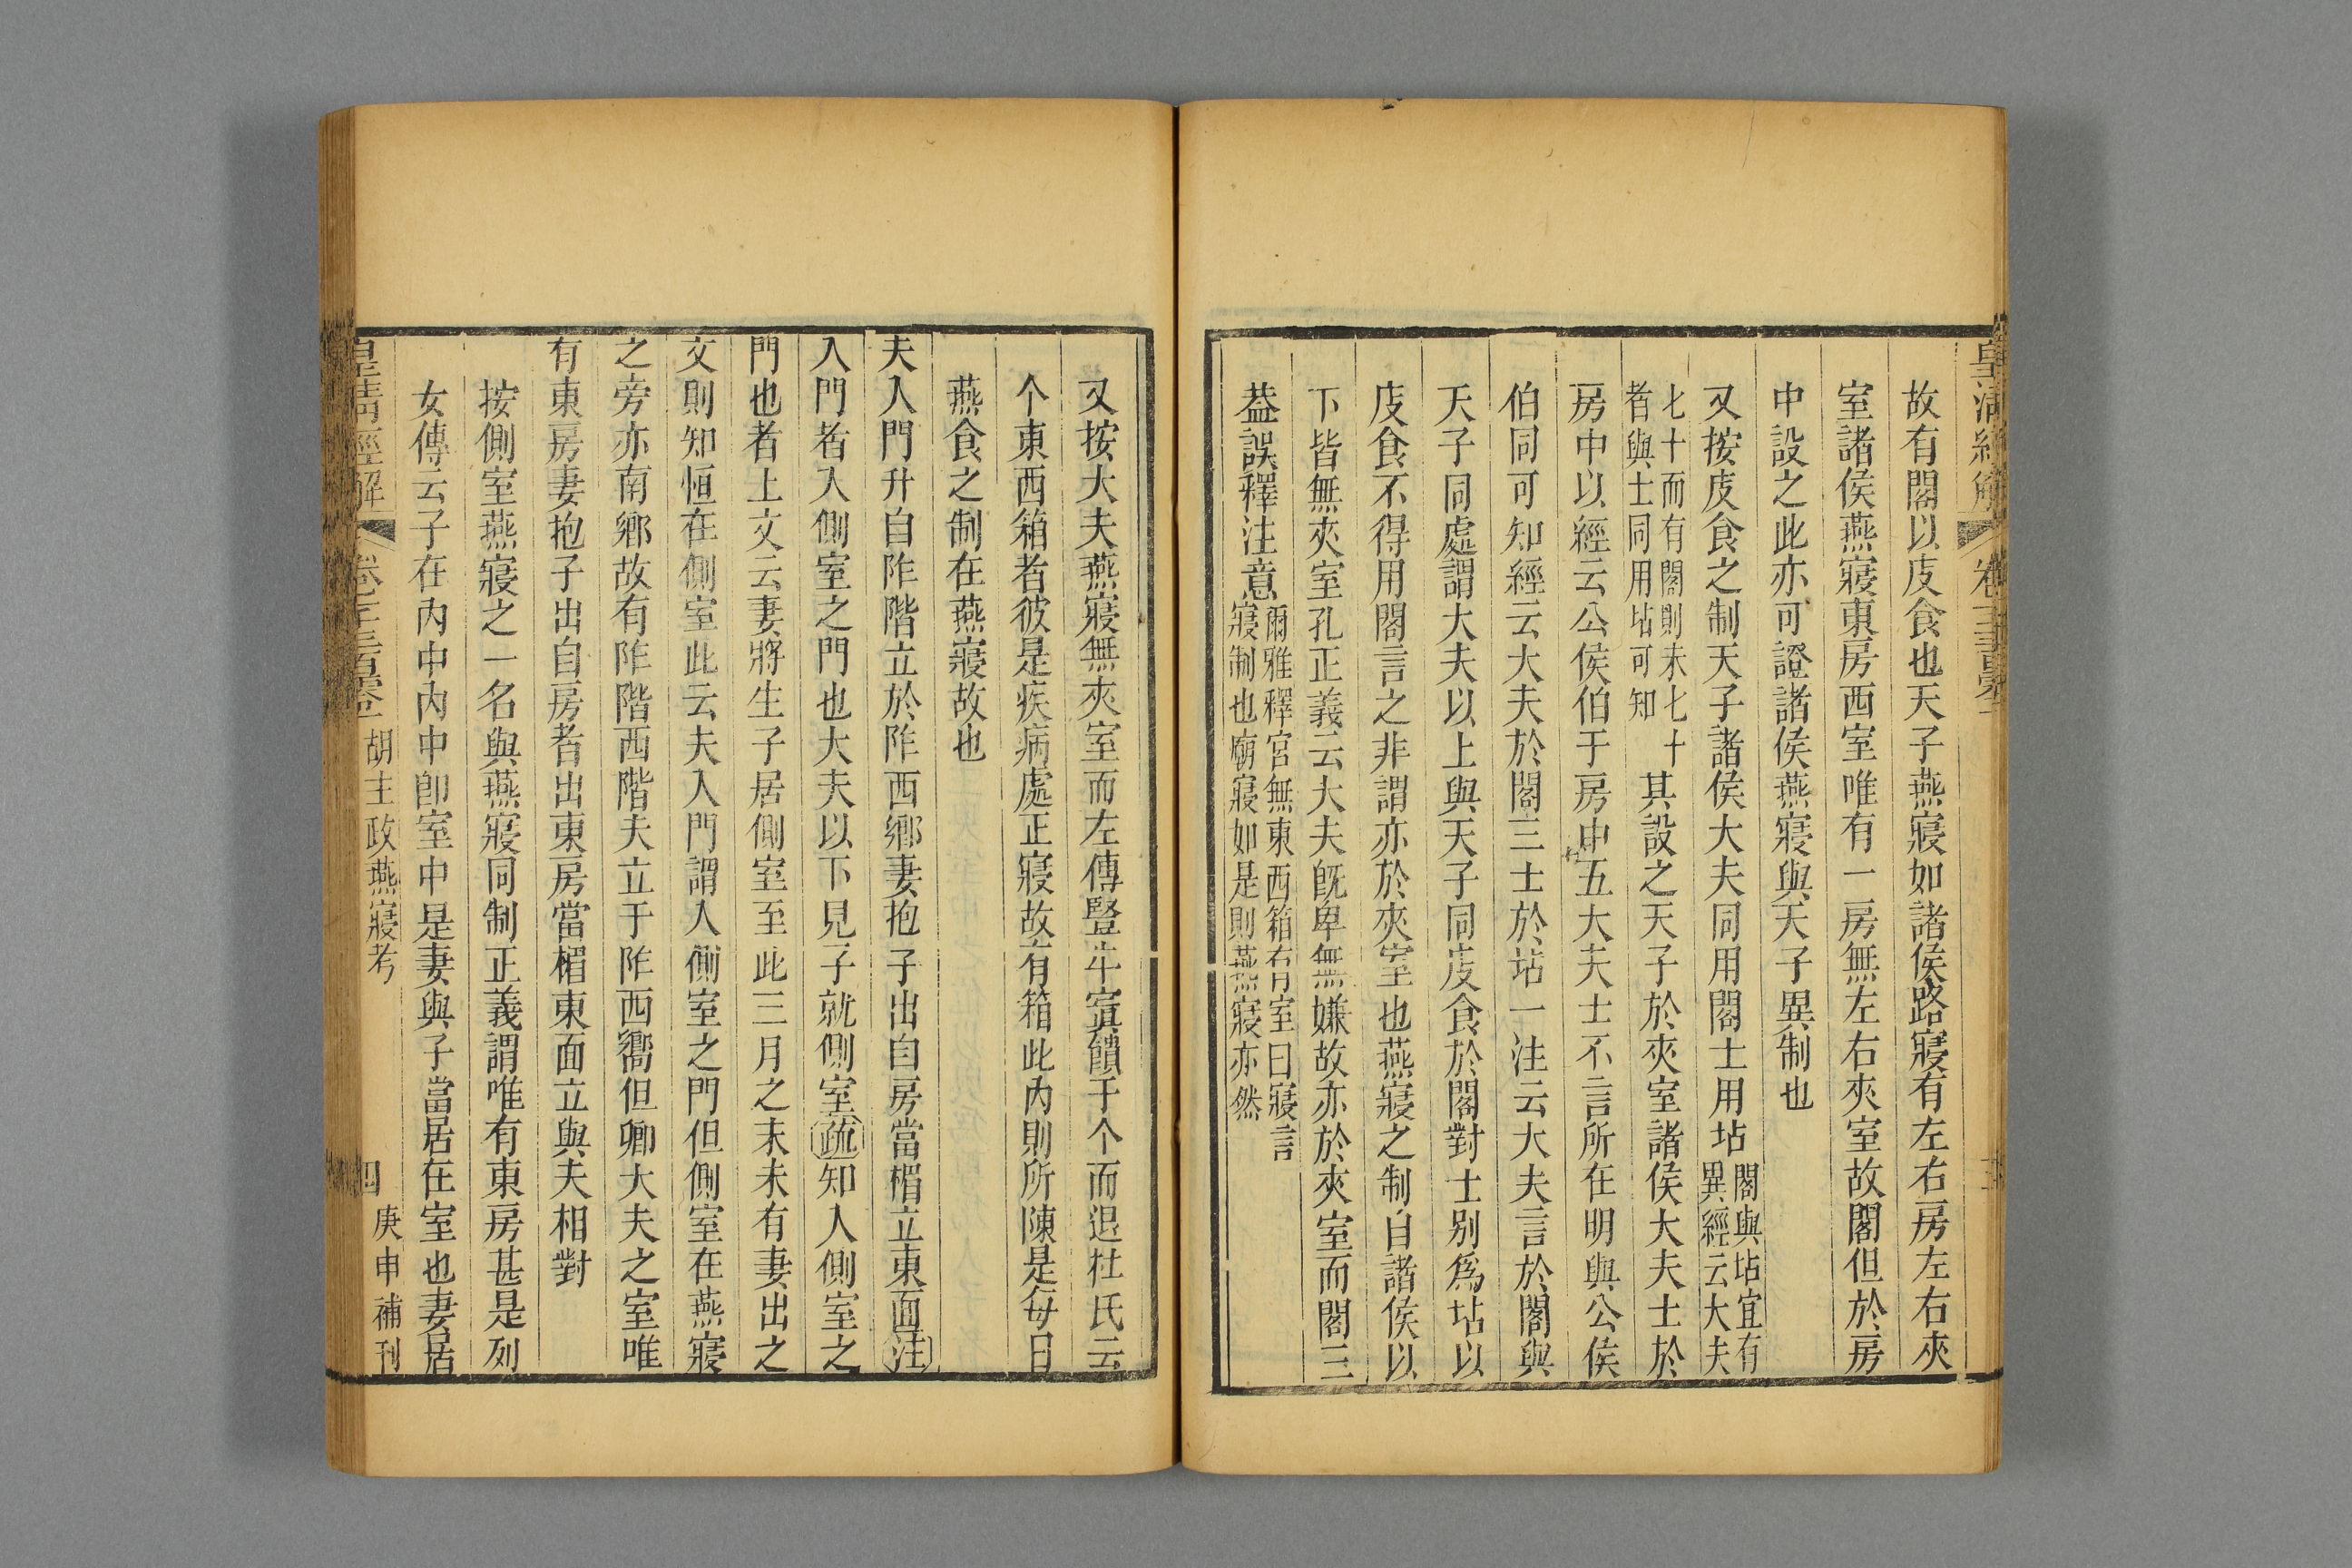 皇清經解
故有閣以庋食也天子燕寢如諸侯路寢有左右房左右夾
室諸侯燕寢東房西室唯有一房無左右夾室故閣但於房
中設之此亦可證諸侯燕寢與天子異制也
又按庋食之制天子諸侯大夫同用閣士用坫閣與坫宜有
異經云大夫
七十而有閣則未七十
者與士同用坫可知其設之天子於夾室諸侯大夫士於
房中以經云公侯伯于房中五大夫士不言所在明與公侯
伯同可知經云大夫於閣三士於坫一注云大夫言於閣與
天子同處謂大夫以上與天子同庋食於閣對士别爲坫以
庋食不得用閣言之非謂亦於夾室也燕寢之制自諸侯以
下皆無夾室孔正義云大夫既卑無嫌故亦於夾室而閣三
葢誤釋注意爾雅釋宮無東西箱有室曰寢言
寢制也廟寢如是則燕寢亦然
又按大夫燕寢無夾室而左傳豎牛寘饋于个而退杜氏云
个東西箱者彼是疾病處正寢故有箱此内則所陳是每日
燕食之制在燕寢故也
夫入門升自阼階立於阼西鄉妻抱子出自房當楣立東面注
入門者入側室之門也大夫以下見子就側室疏知入側室之
門也者上文云妻將生子居側室至此三月之末未有妻出之
文則知恒在側室此云夫入門謂入側室之門但側室在燕寢
之旁亦南鄉故有阼階西階夫立于阼西嚮但卿大夫之室唯
有東房妻抱子出自房者出東房當楣東面立與夫相對
按側室燕寢之一名與燕寢同制正義謂唯有東房甚是列
女傳云子在内中内中卽室中是妻與子當居在室也妻居
皇清經解
胡主政燕寢考
四
庚申補刊